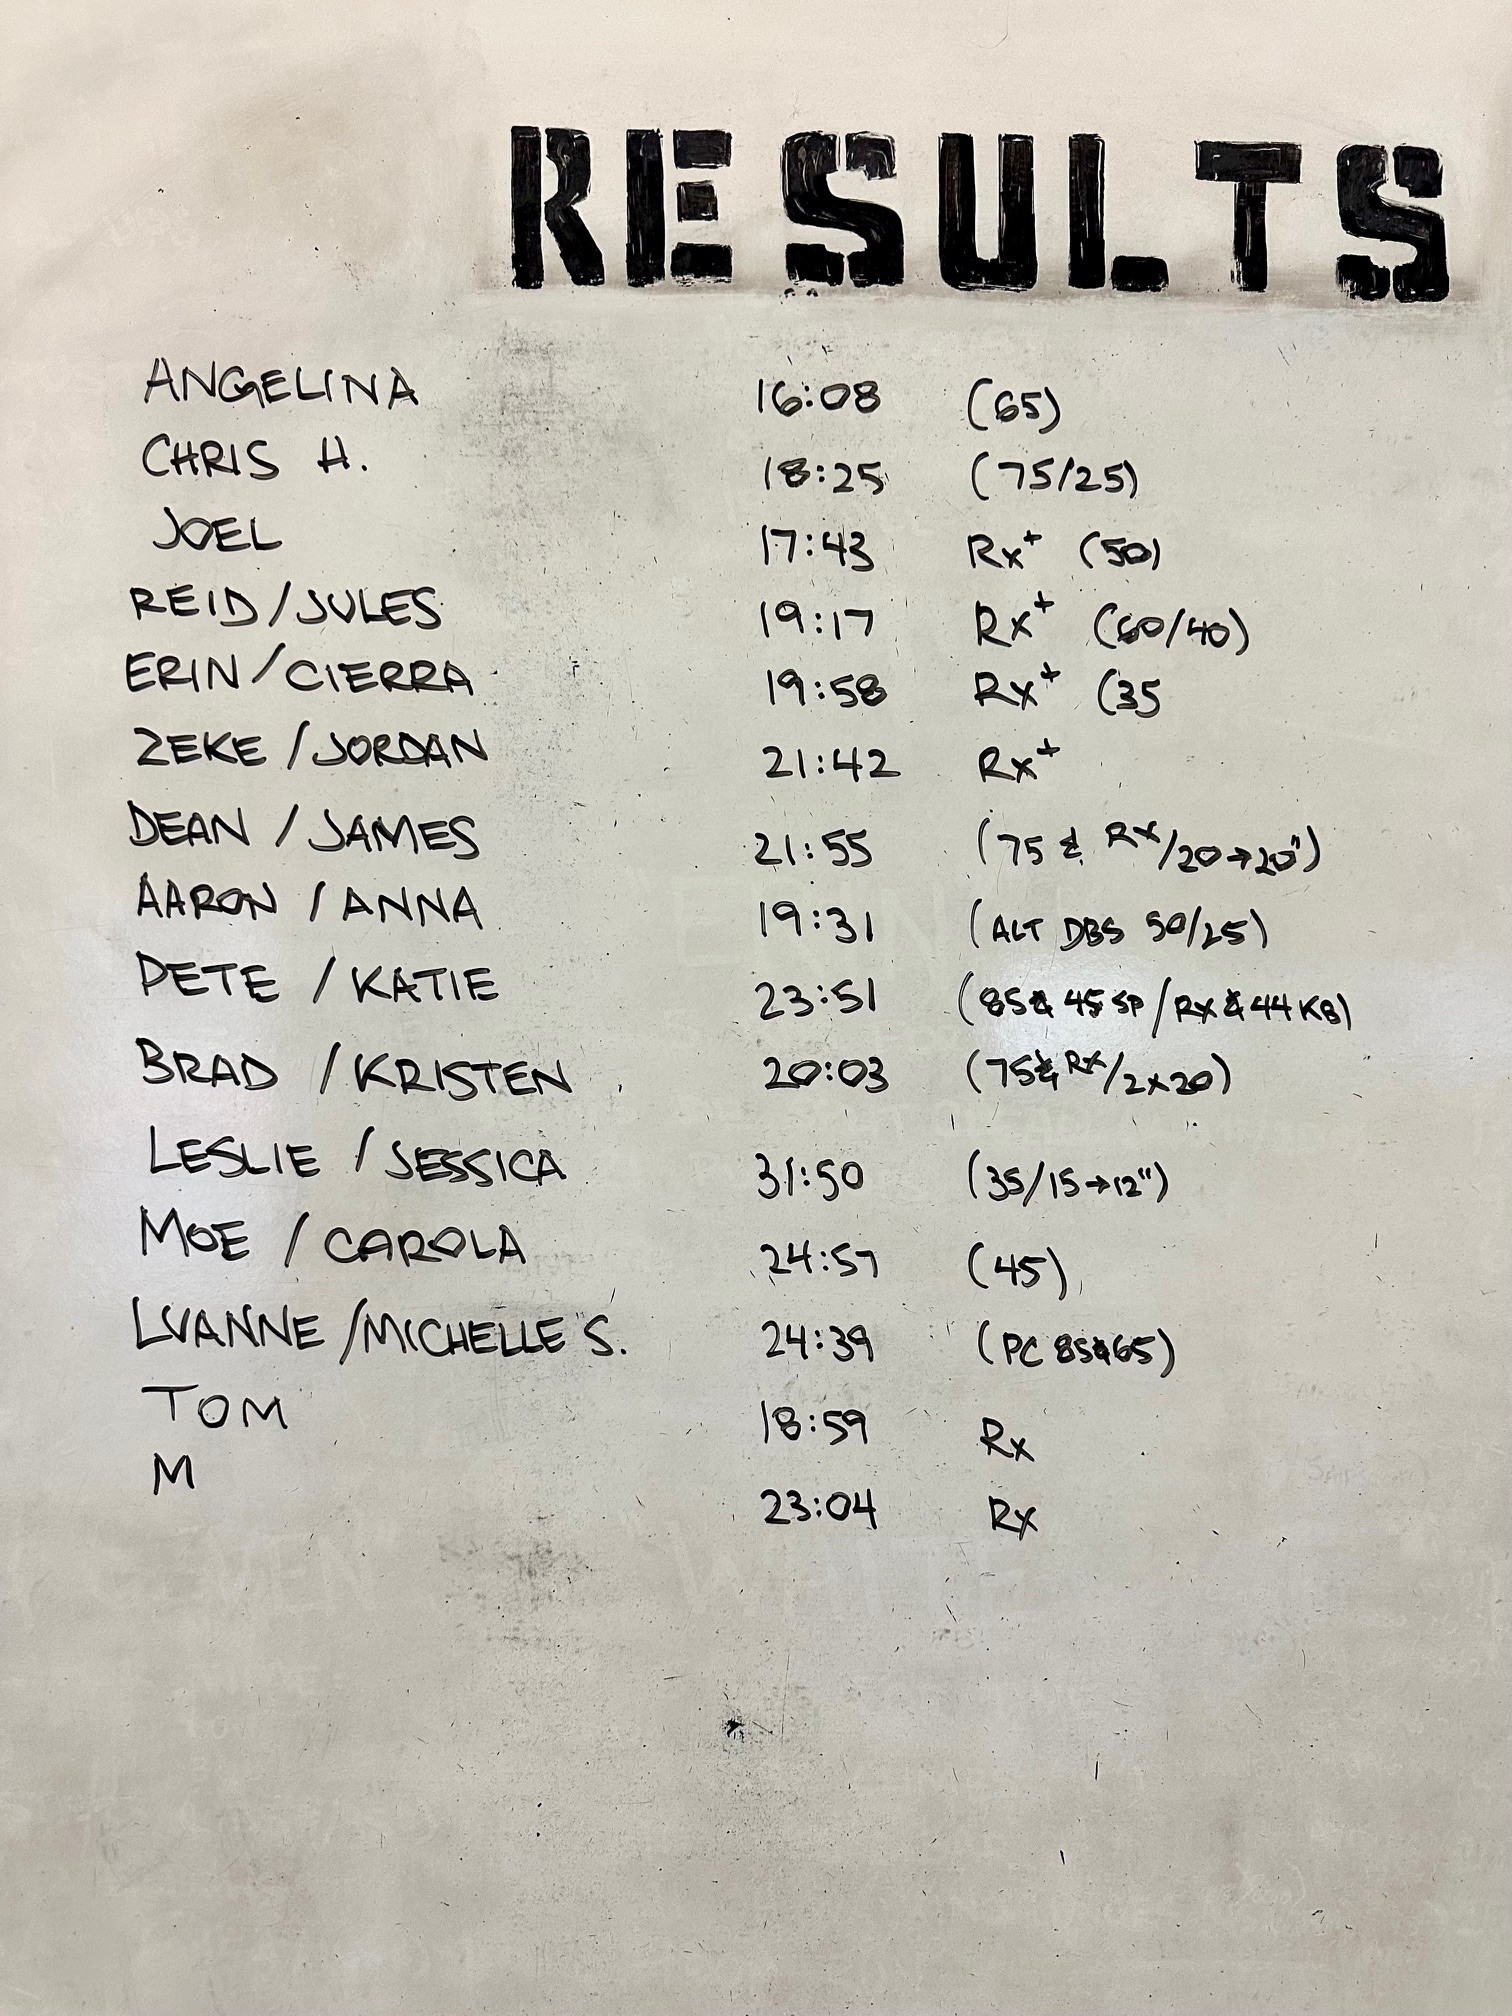 RESULTS
ANGELINA 16:08 (65)
CHRIS H. 18:25 (75/25)
JOEL 17:43 Rx+ (50)
REID/JULES 19:17 Rx+ (60/40)
ERIN/CIERRA 19:58 Rx+ (35
ZEKE/JORDAN 21:42 Rx+
DEAN/JAMES 21:55 (75 & Rx/20→20")
AARON/ANNA 19:31 (ALT DBS 50/25)
PETE/KATIE 23:51 (85& 45 SP/RX & 44 KB)
BRAD/KRISTEN 20:03 (75& RX/2x20)
LESLIE/JESSICA 31:50 (35/15→12")
MOE/CAROLA 24:57 (45)
LUANNE/MICHELLE S. 24:39 (PC 85&65)
TOM 18:59 Rx
M 23:04 Rx